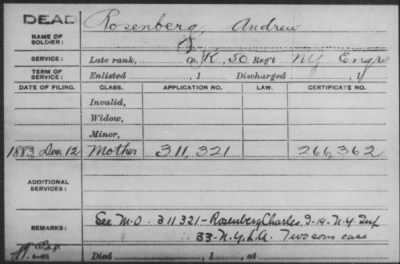 DEAD
Rosenberg, Andrew
NAME OF SOLDIER:
SERVICE: Late rank, Co. K, 50 Reg't NY Engrs
TERM OF SERVICE: Enlisted , 1 Discharged , 1
DATE OF FILING. CLASS. APPLICATION NO. LAW. CERTIFICATE NO.
Invalid,
Widow,
Minor,
1883 Dec 12 Mother 311,321 266,362
ADDITIONAL SERVICES:
REMARKS: See M.O. 311321-Rosenberg Charles, D-19-N.Y. Inf
33-N.Y.L.A. Two sons case
Died , 1 , at